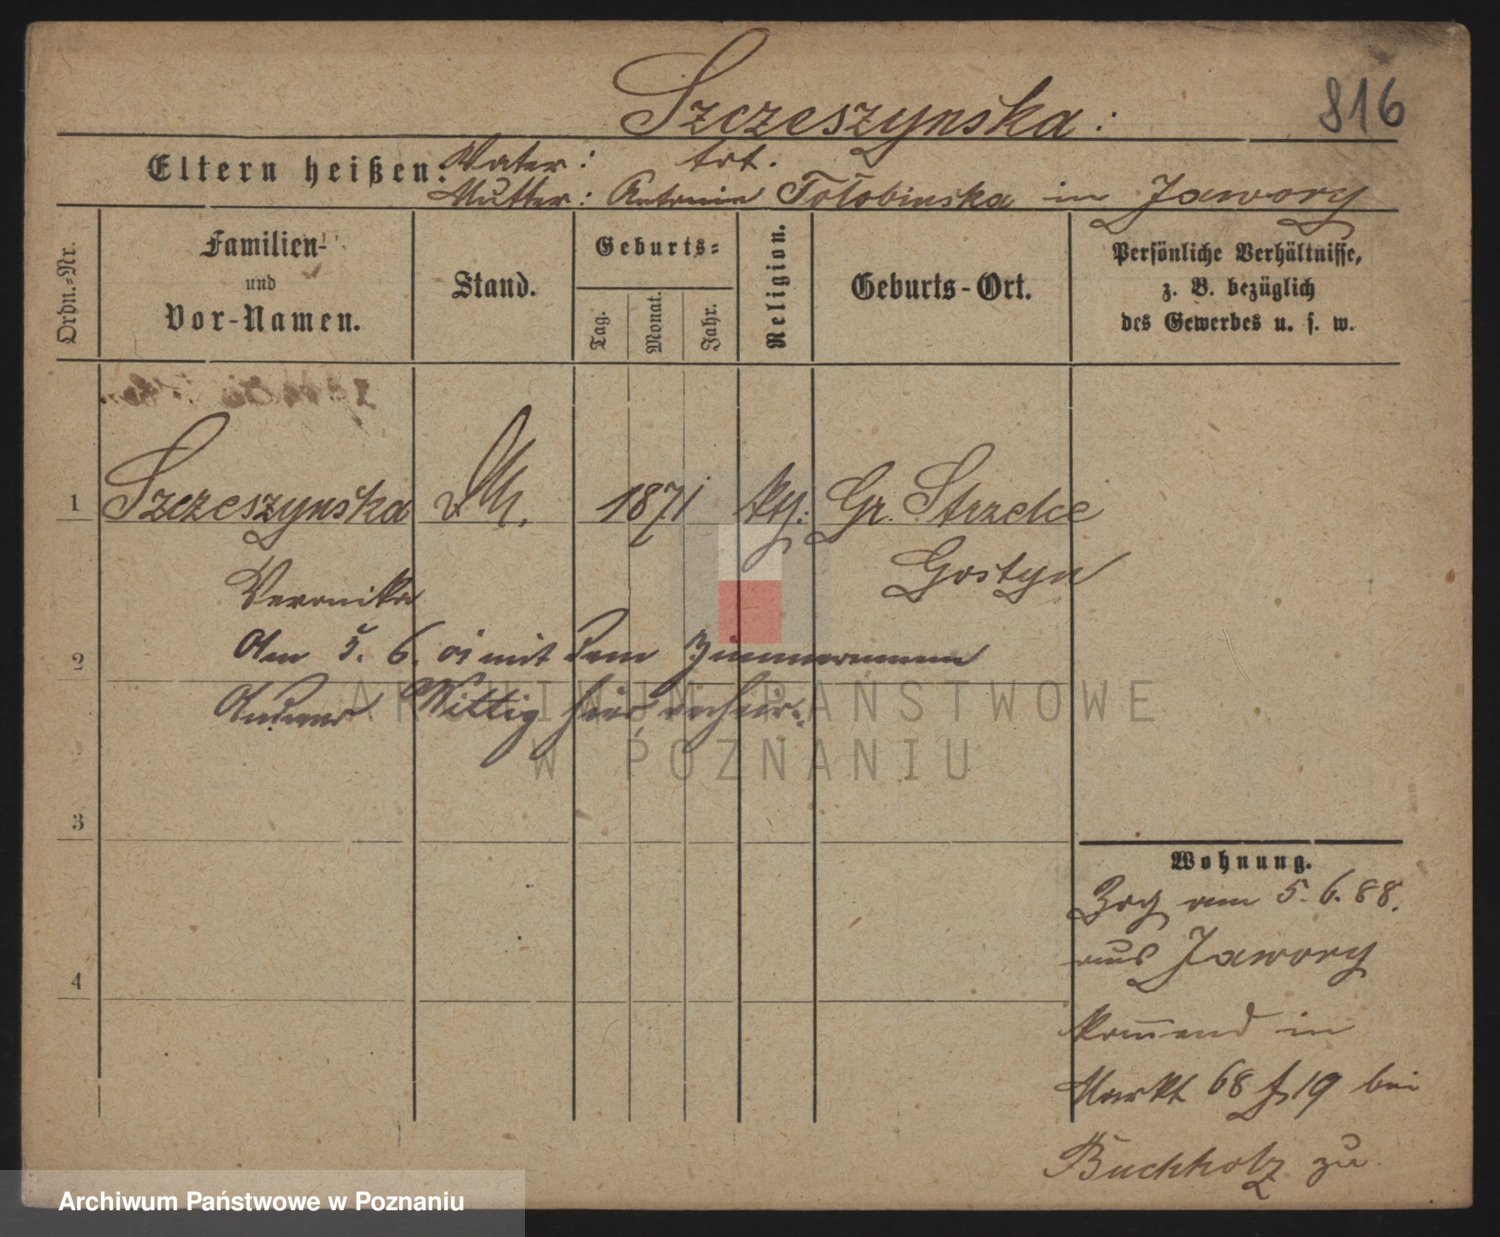 Szczeszynska:
816
Eltern heißen: Vater: tot.
Mutter: Antonie Tolobinska in Jawory
Ordn.-Nr.
Familien-
und
Vor-Namen.
Stand.
Geburts-
Tag.
Monat.
Jahr.
Religion.
Geburts-Ort.
Persönliche Verhältnisse,
z. B. bezüglich
des Gewerbes u. s. w.
1 Szczeszynska 1871 kth: Gr. Strzelce
Gostyn
Veronika
2 Am 5. 6. 01 mit dem Zimmermann
Wittig hier verheir.
3
4
Wohnung.
Zog am 5. 6. 88.
aus Jawory
kom̅end in
Markt 68 19 bei
Buchholz zu
ARCHIWUM PAŃSTWOWE
W POZNANIU
Archiwum Państwowe w Poznaniu